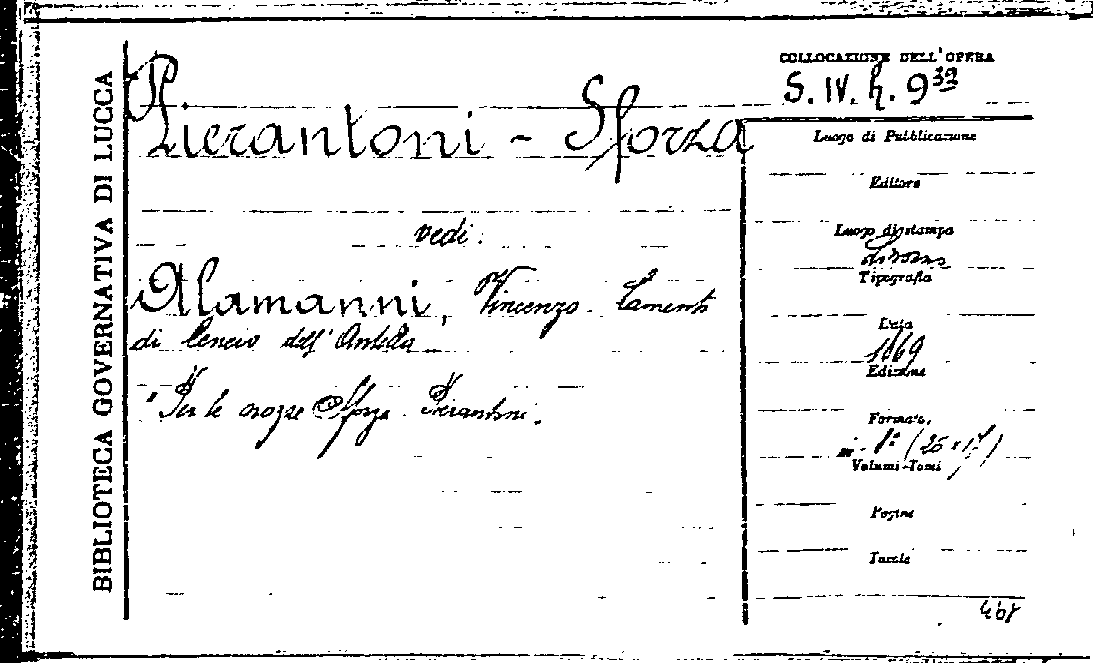 BIBLIOTECA GOVERNATIVA DI LUCCA
COLLOCAZIONE DELL'OPERA
S. IV. h. 9³²
Pierantoni - Sforza
vedi:
Alamanni, Vincenzo. Lamento
di Cencio dell' Antella
"Per le nozze Sforza Pierantoni.
Luogo di Pubblicazione
Editore
Luogo di stampa
Livorno
Tipografia
Data
1869
Edizione
Formato,
in-8° (26 x 17)
Volumi-Tomi
Pagine
Tavole